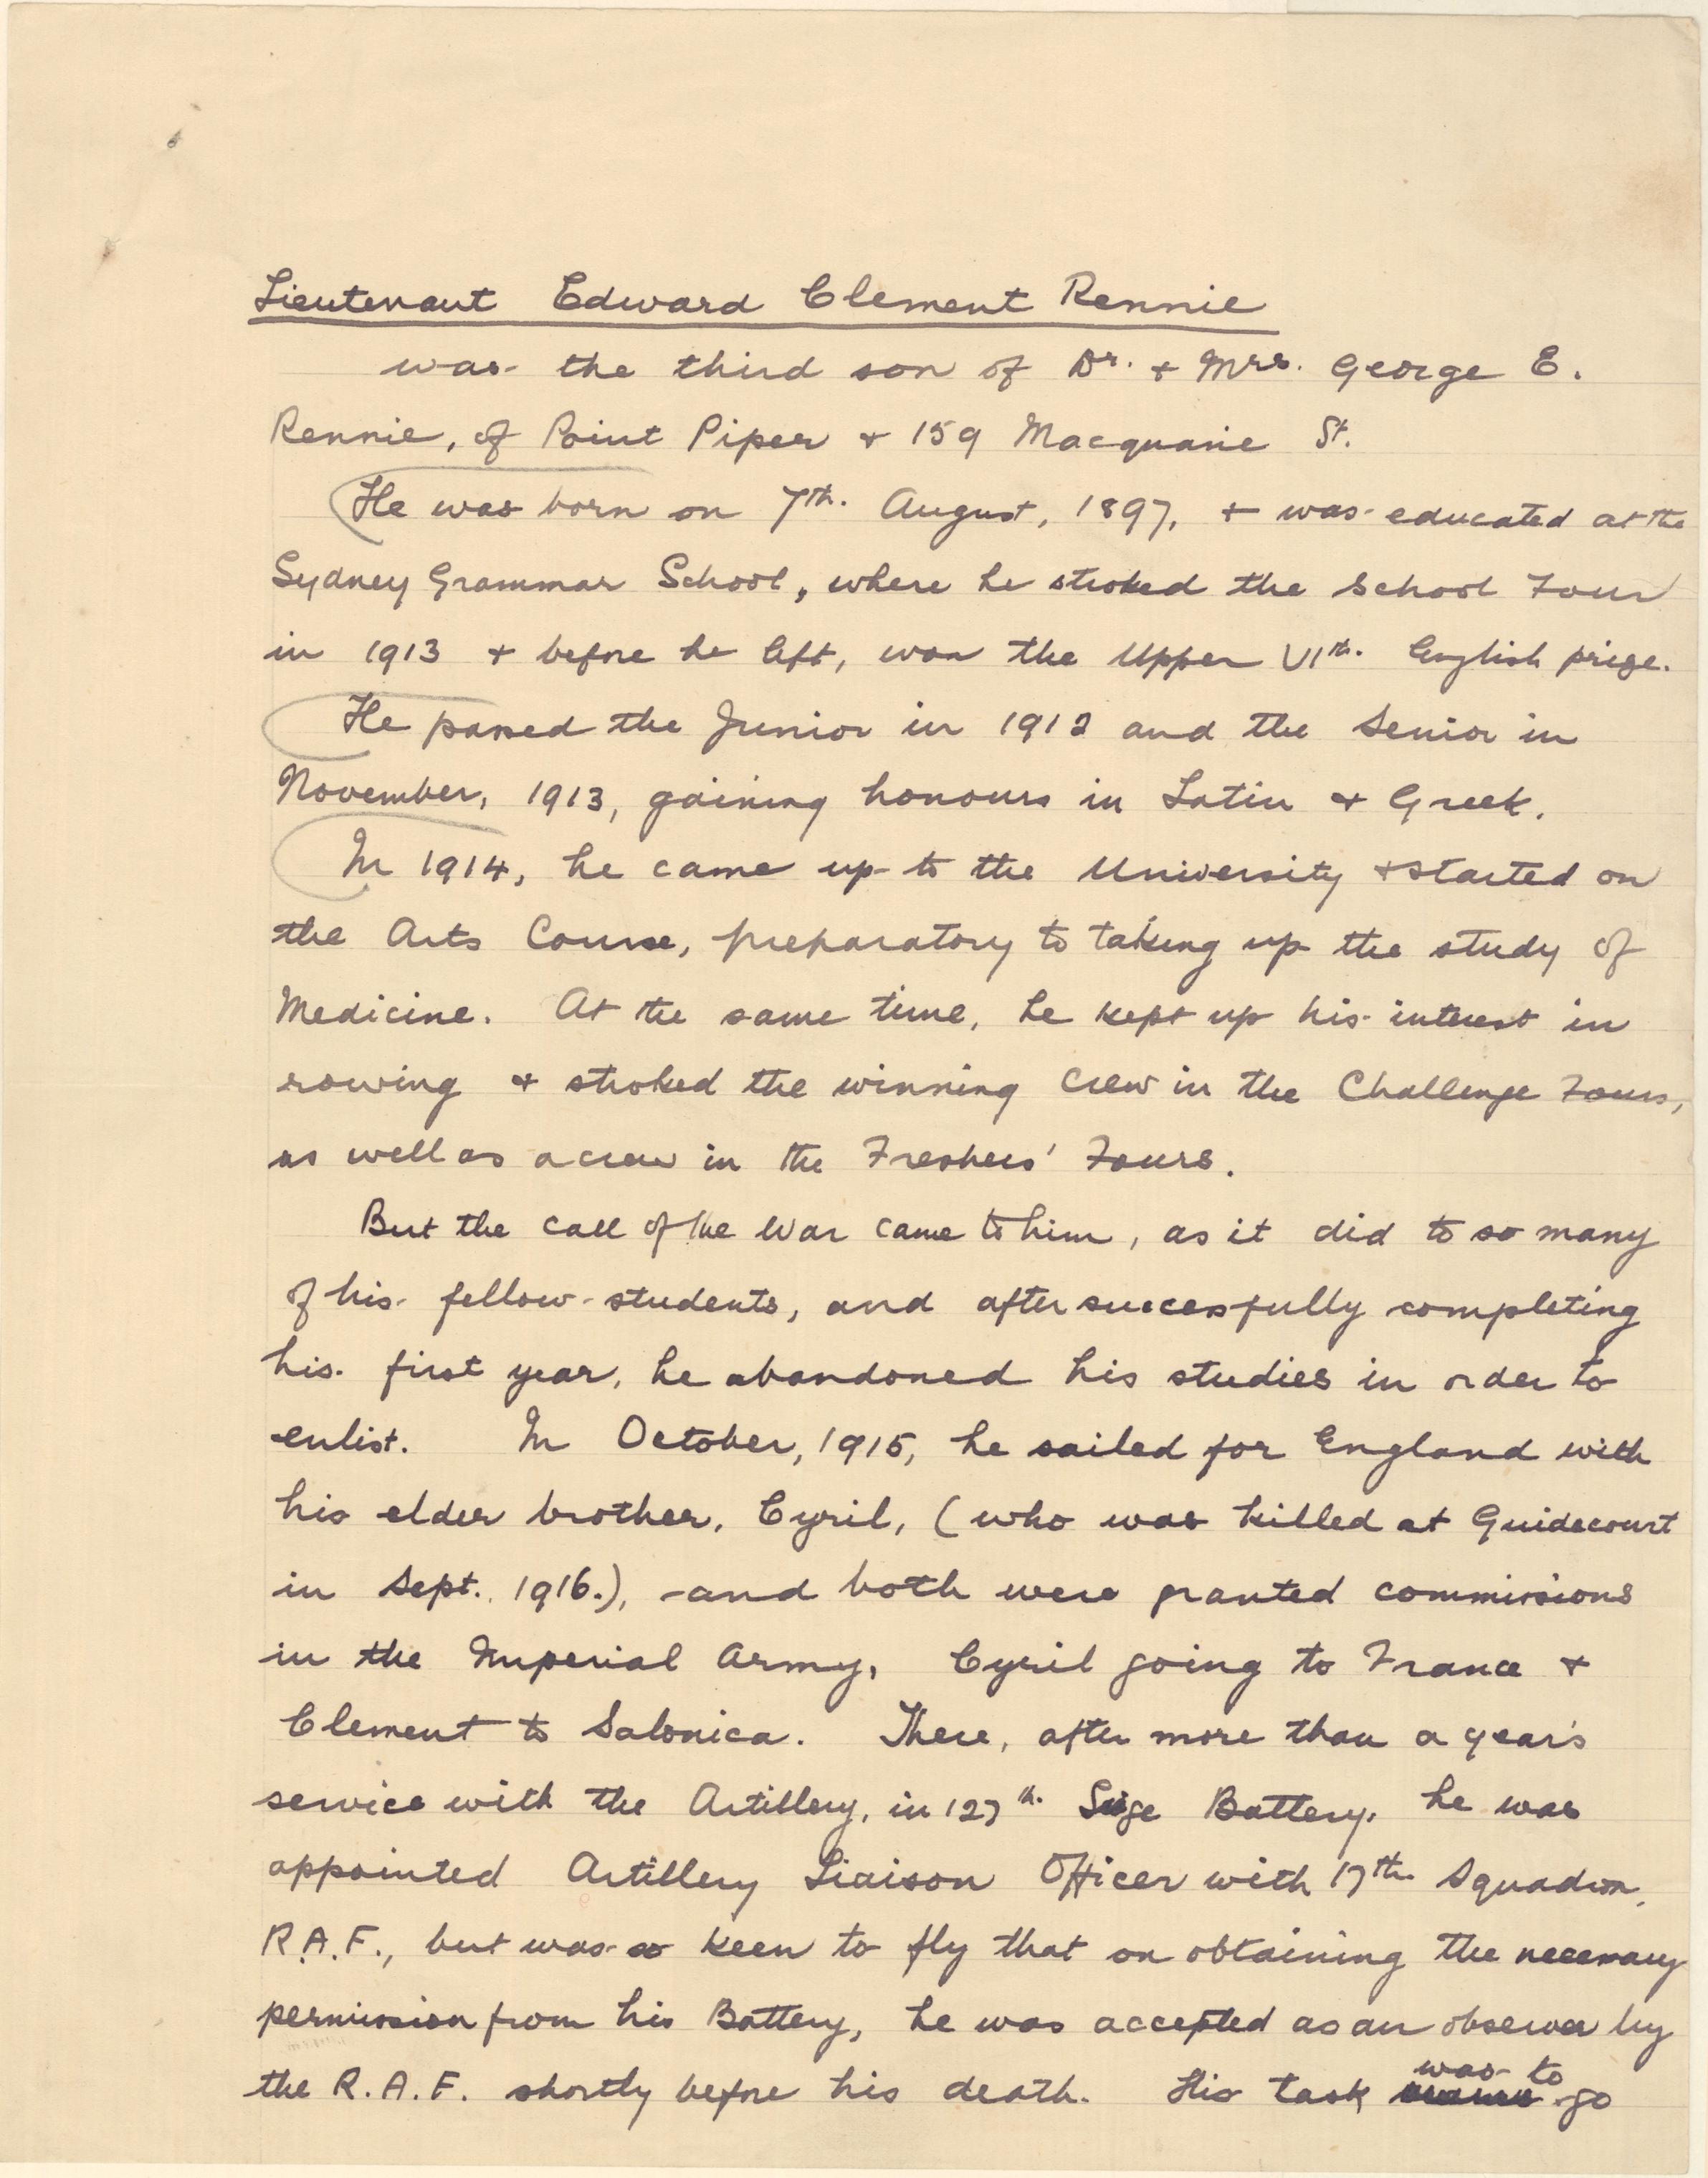 Lieutenant Edward Clement Rennie
was the third son of Dr. + Mrs. George E.
Rennie, of Point Piper + 159 Macquarie St.
He was born on 7th. August, 1897, + was educated at the
Sydney Grammar School, where he stroked the School Four
in 1913 + before he left, won the Upper VIth. English prize.
He passed the Junior in 1912 and the Senior in
November, 1913, gaining honours in Latin + Greek.
In 1914, he came up to the University + started on
the Arts Course, preparatory to taking up the study of
Medicine. At the same time, he kept up his interest in
rowing + stroked the winning crew in the Challenge Fours,
as well as a crew in the Freshers' Fours.
But the call of the War came to him, as it did to so many
of his fellow-students, and after succesfully completing
his first year, he abandoned his studies in order to
enlist. In October, 1915, he sailed for England with
his elder brother, Cyril, (who was killed at Guidecourt
in Sept. 1916.), and both were granted commissions
in the Imperial Army, Cyril going to France +
Clement to Salonica. There, after more than a year's
service with the Artillery, in 127th. Seige Battery, he was
appointed Artillery Liaison Officer with 17th. Squadron,
R.A.F., but was so keen to fly that on obtaining the necessary
permission from his Battery, he was accepted as an observer by
the R.A.F. shortly before his death. His task was to go